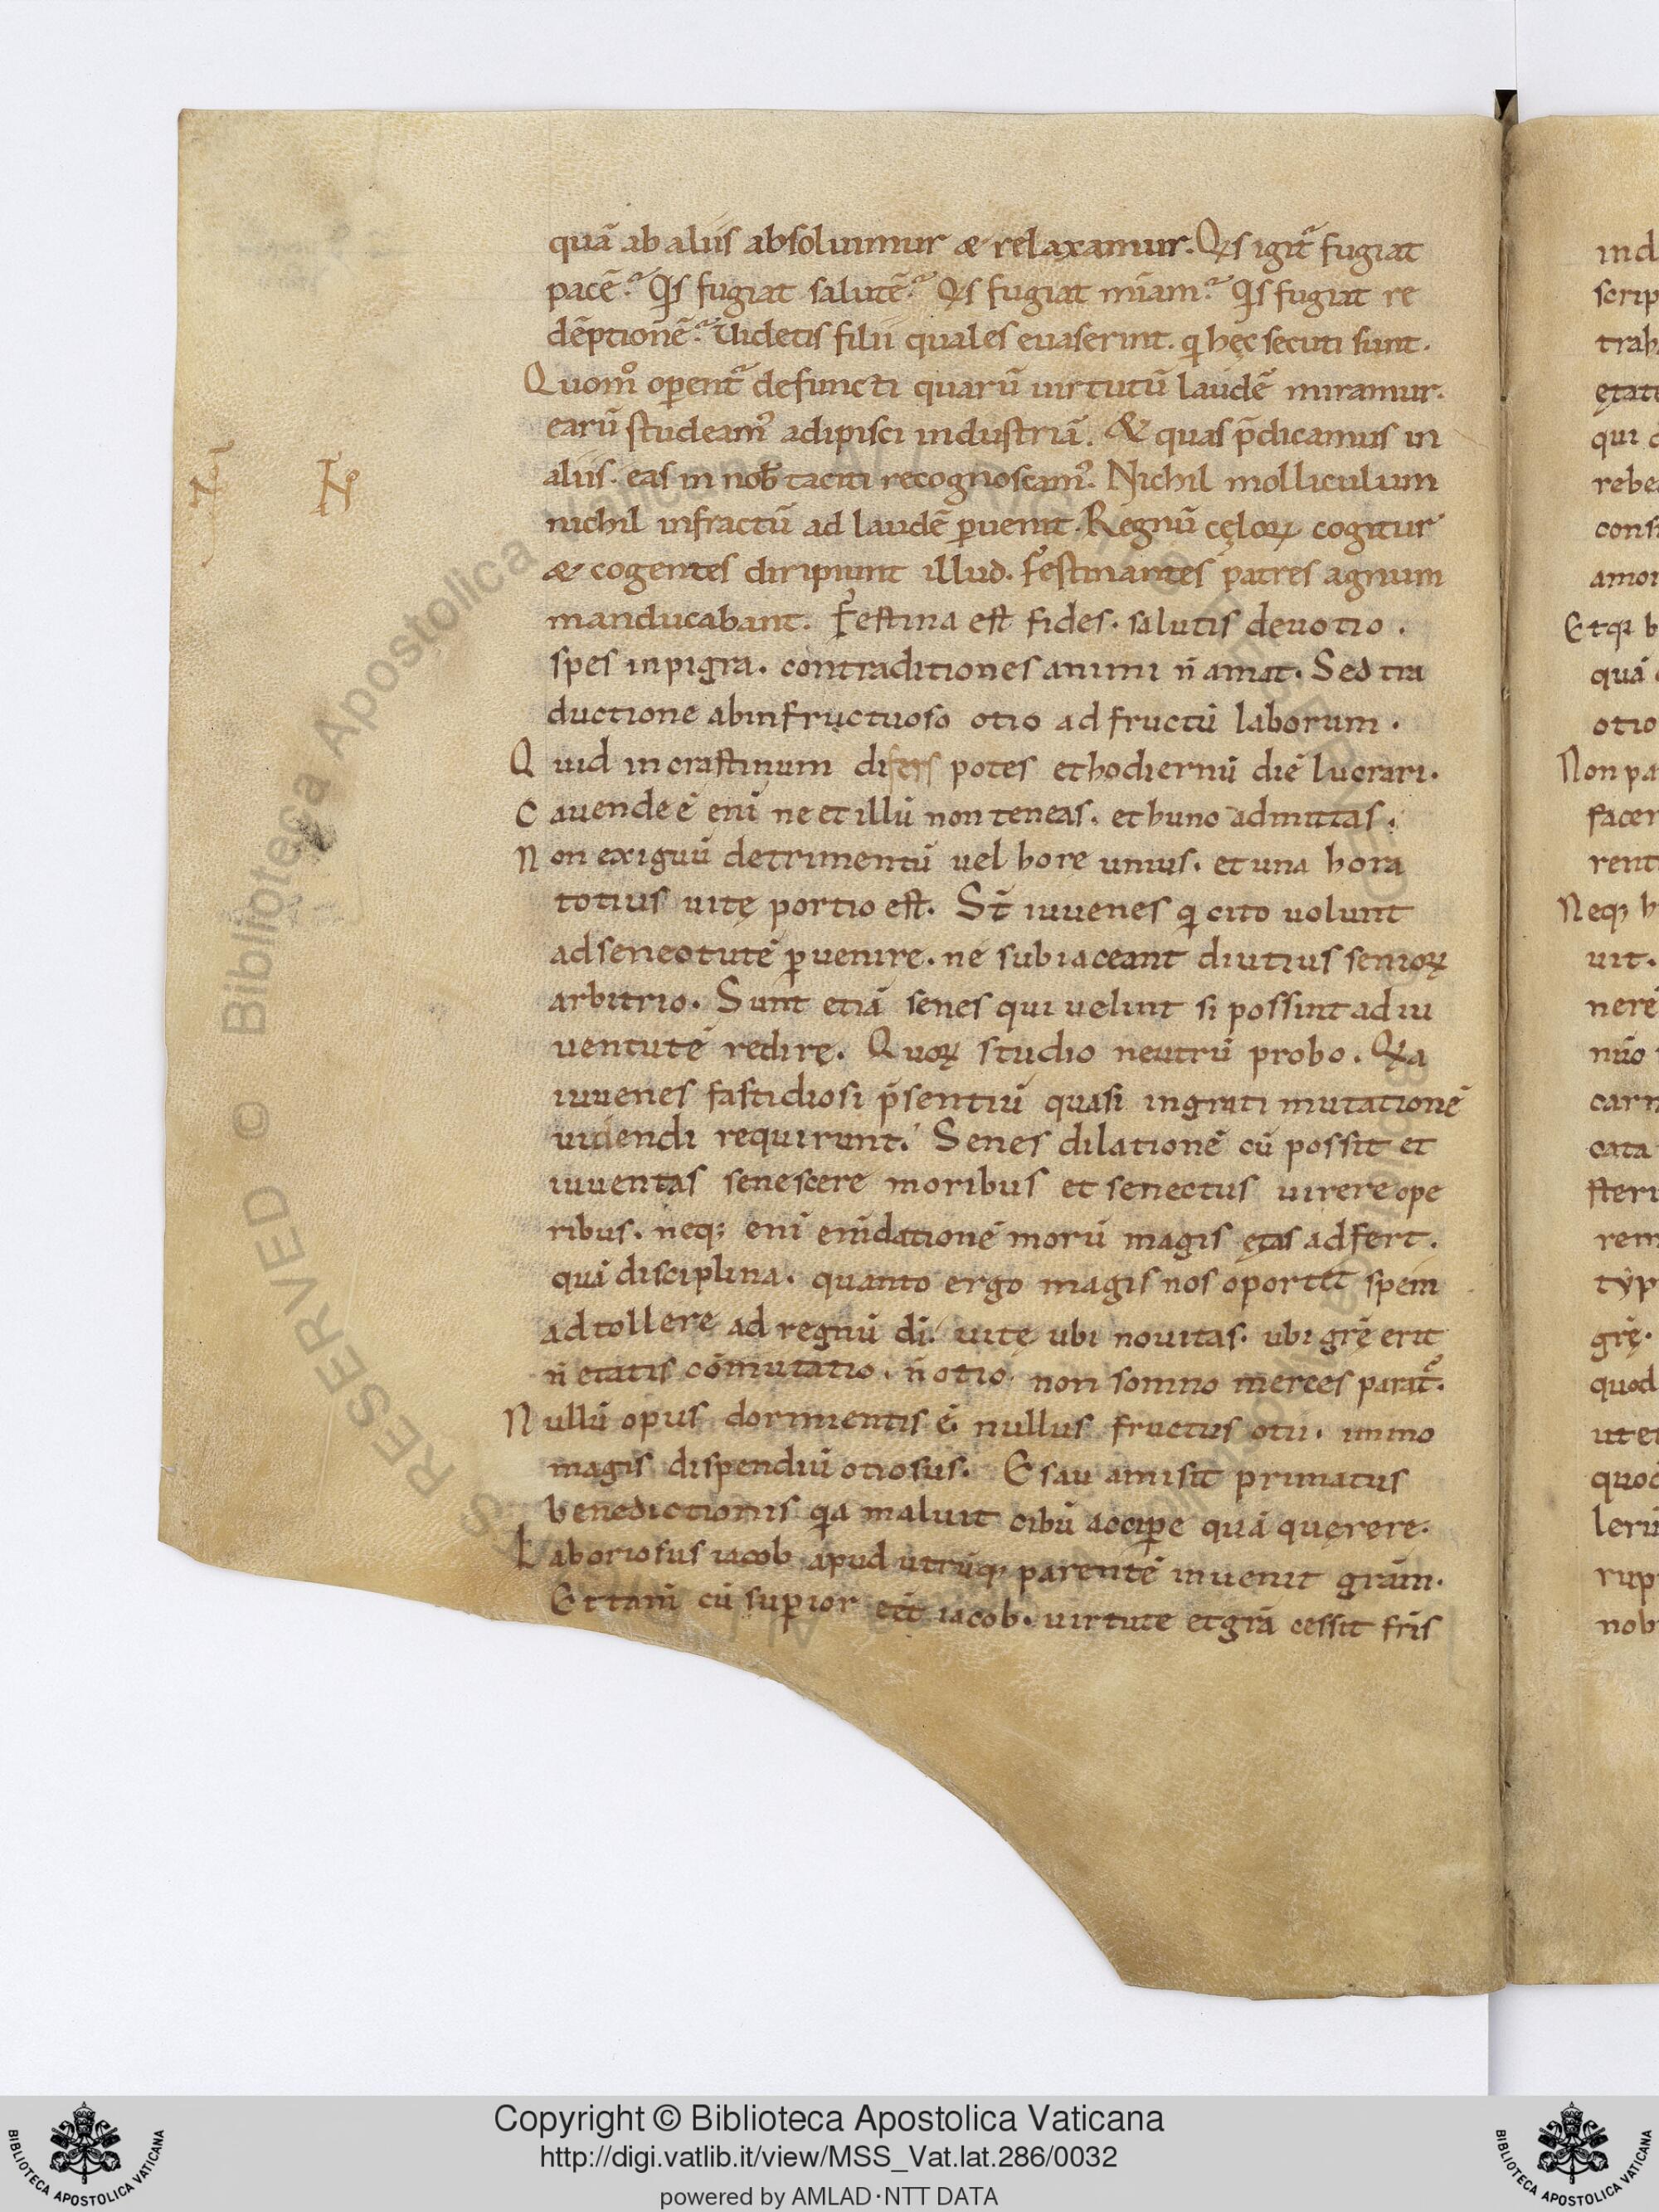 quā ab aliis absoluimur & relaxamur. Qis igit᷑ fugiat
pacē? Qis fugiat salutē? Qis fugiat mīam? Qis fugiat re
dēptionē? Videtis filii quales euaserint. qi hęc secuti sunt.
Quom̊ operent᷑ defuncti quarū uirtutū laudē miramur.
earū studeam᷒ adipisci industriā. & quas p̄dicamus in
aliis. eas in nob̄ taciti recognoscam᷒. Nichil molliculum
nichil infractū ad laudē ꝑuenit. Regnū cęloꝝ cogitur
& cogentes diripiunt illud. Festinantes patres agnum
manducabant. Festina est fides. salutis deuotio.
spes inpigra. contraditiones animi n̄ amat. Sed tra
ductione ab infructuoso otio ad fructū laborum.
Quid in crastinum difers potes et hodiernū diē lucrari.
Cauende ē enī ne et illū non teneas. et hunc admittas.
Non exiguū detrimentū uel hore unius. et una hora
totius uitę portio est. St̄ iuuenes qi cito uolunt
ad senectutē ꝑuenire. ne subiaceant diutius senioꝝ
arbitrio. Sunt etiā senes qui uelint si possint ad iu
uentutē redire. Quoꝝ studio neutrū probo. Qia
iuuenes fastidiosi p̄sentiū quasi ingrati mutationē
uidendi requirunt. Senes dilationē cū possit et
iuuentas senescere moribus et senectus uirere ope
ribus. neq; enī em̄dationē morū magis ętas adfert.
quā disciplina. quanto ergo magis nos oportet spem
adtollere ad regnū dī. uitę ubi nouitas. ubi grę̄ erit
n̄ etatis cōmutatio. n̄ otio. non somno merces parat᷑.
Nullū opus dormientis ē. nullus fructus otii. immo
magis dispendiū otiosus. Esau amisit primatus
benedictionis qia maluit cibū acciꝑe quā quęrere.
Laboriosus iacob apud utrūq; parentē inuenit grām.
Et tam̄ cū suꝑior eēt iacob. uirtute et grā cessit fr̄is
N
ind
scrip
trah
ętate
qui
rebe
cons
amor
Etqꝛ b
quā
otio
Non pa
facer
rent
Neq; h
uit.
nerē
nūo
carn
cata
steri
rem
typ
grę.
quod
utei
quod
lerū
rup
nob
Copyright © Biblioteca Apostolica Vaticana
http://digi.vatlib.it/view/MSS_Vat.lat.286/0032
powered by AMLAD·NTT DATA
BIBLIOTECA APOSTOLICA VATICANA
BIBLIOTECA APOSTOLICA VATICANA